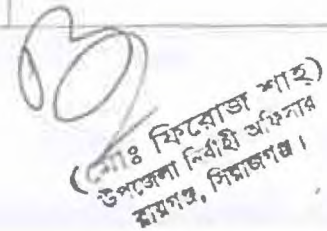 (মোঃ ফিরোজ শাহ)
উপজেলা নির্বাহী অফিসার
রায়গঞ্জ, সিরাজগঞ্জ।